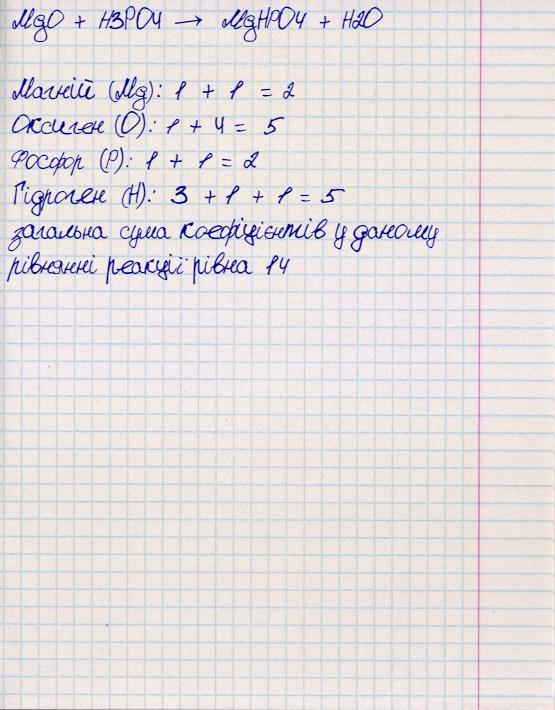 MgO + H3PO4 → MgHPO4 + H2O
Магній (Mg): 1 + 1 = 2
Оксиген (O): 1 + 4 = 5
Фосфор (P): 1 + 1 = 2
Гідроген (H): 3 + 1 + 1 = 5
загальна сума коефіцієнтів у даному
рівнянні реакції рівна 14